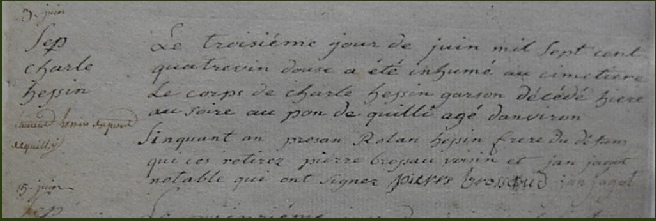 3 juin
Sep
charle
hessin
Le troisiéme jour de juin mil sept cent
quatrevin douse a été inhumé au cimetiere
Le corps de charle hessin garson décédé hiere
au soire au pon de quilli agé danviron
Sinquant an presan Rolan hessin frere du défam
qui ces retirez pierre brossau voisin et jan jagot
notable qui ont signez pierre brossaud jan jagot
15 juin
Sep